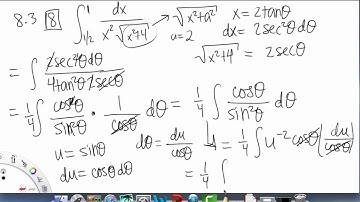 8.3 [8] ∫_{1/2}^{1} dx / (x² √(x²+4)) → √(x²+a²) x = 2tanθ
a = 2 dx = 2sec²θdθ
√(x²+4) = 2secθ
= ∫ 2sec²θdθ / (4tan²θ 2secθ)
= 1/4 ∫ cos²θ / sin²θ · 1/cosθ dθ = 1/4 ∫ cosθ / sin²θ dθ
u = sinθ dθ = du/cosθ = 1/4 ∫ u⁻² cosθ (du/cosθ)
du = cosθ dθ = 1/4 ∫